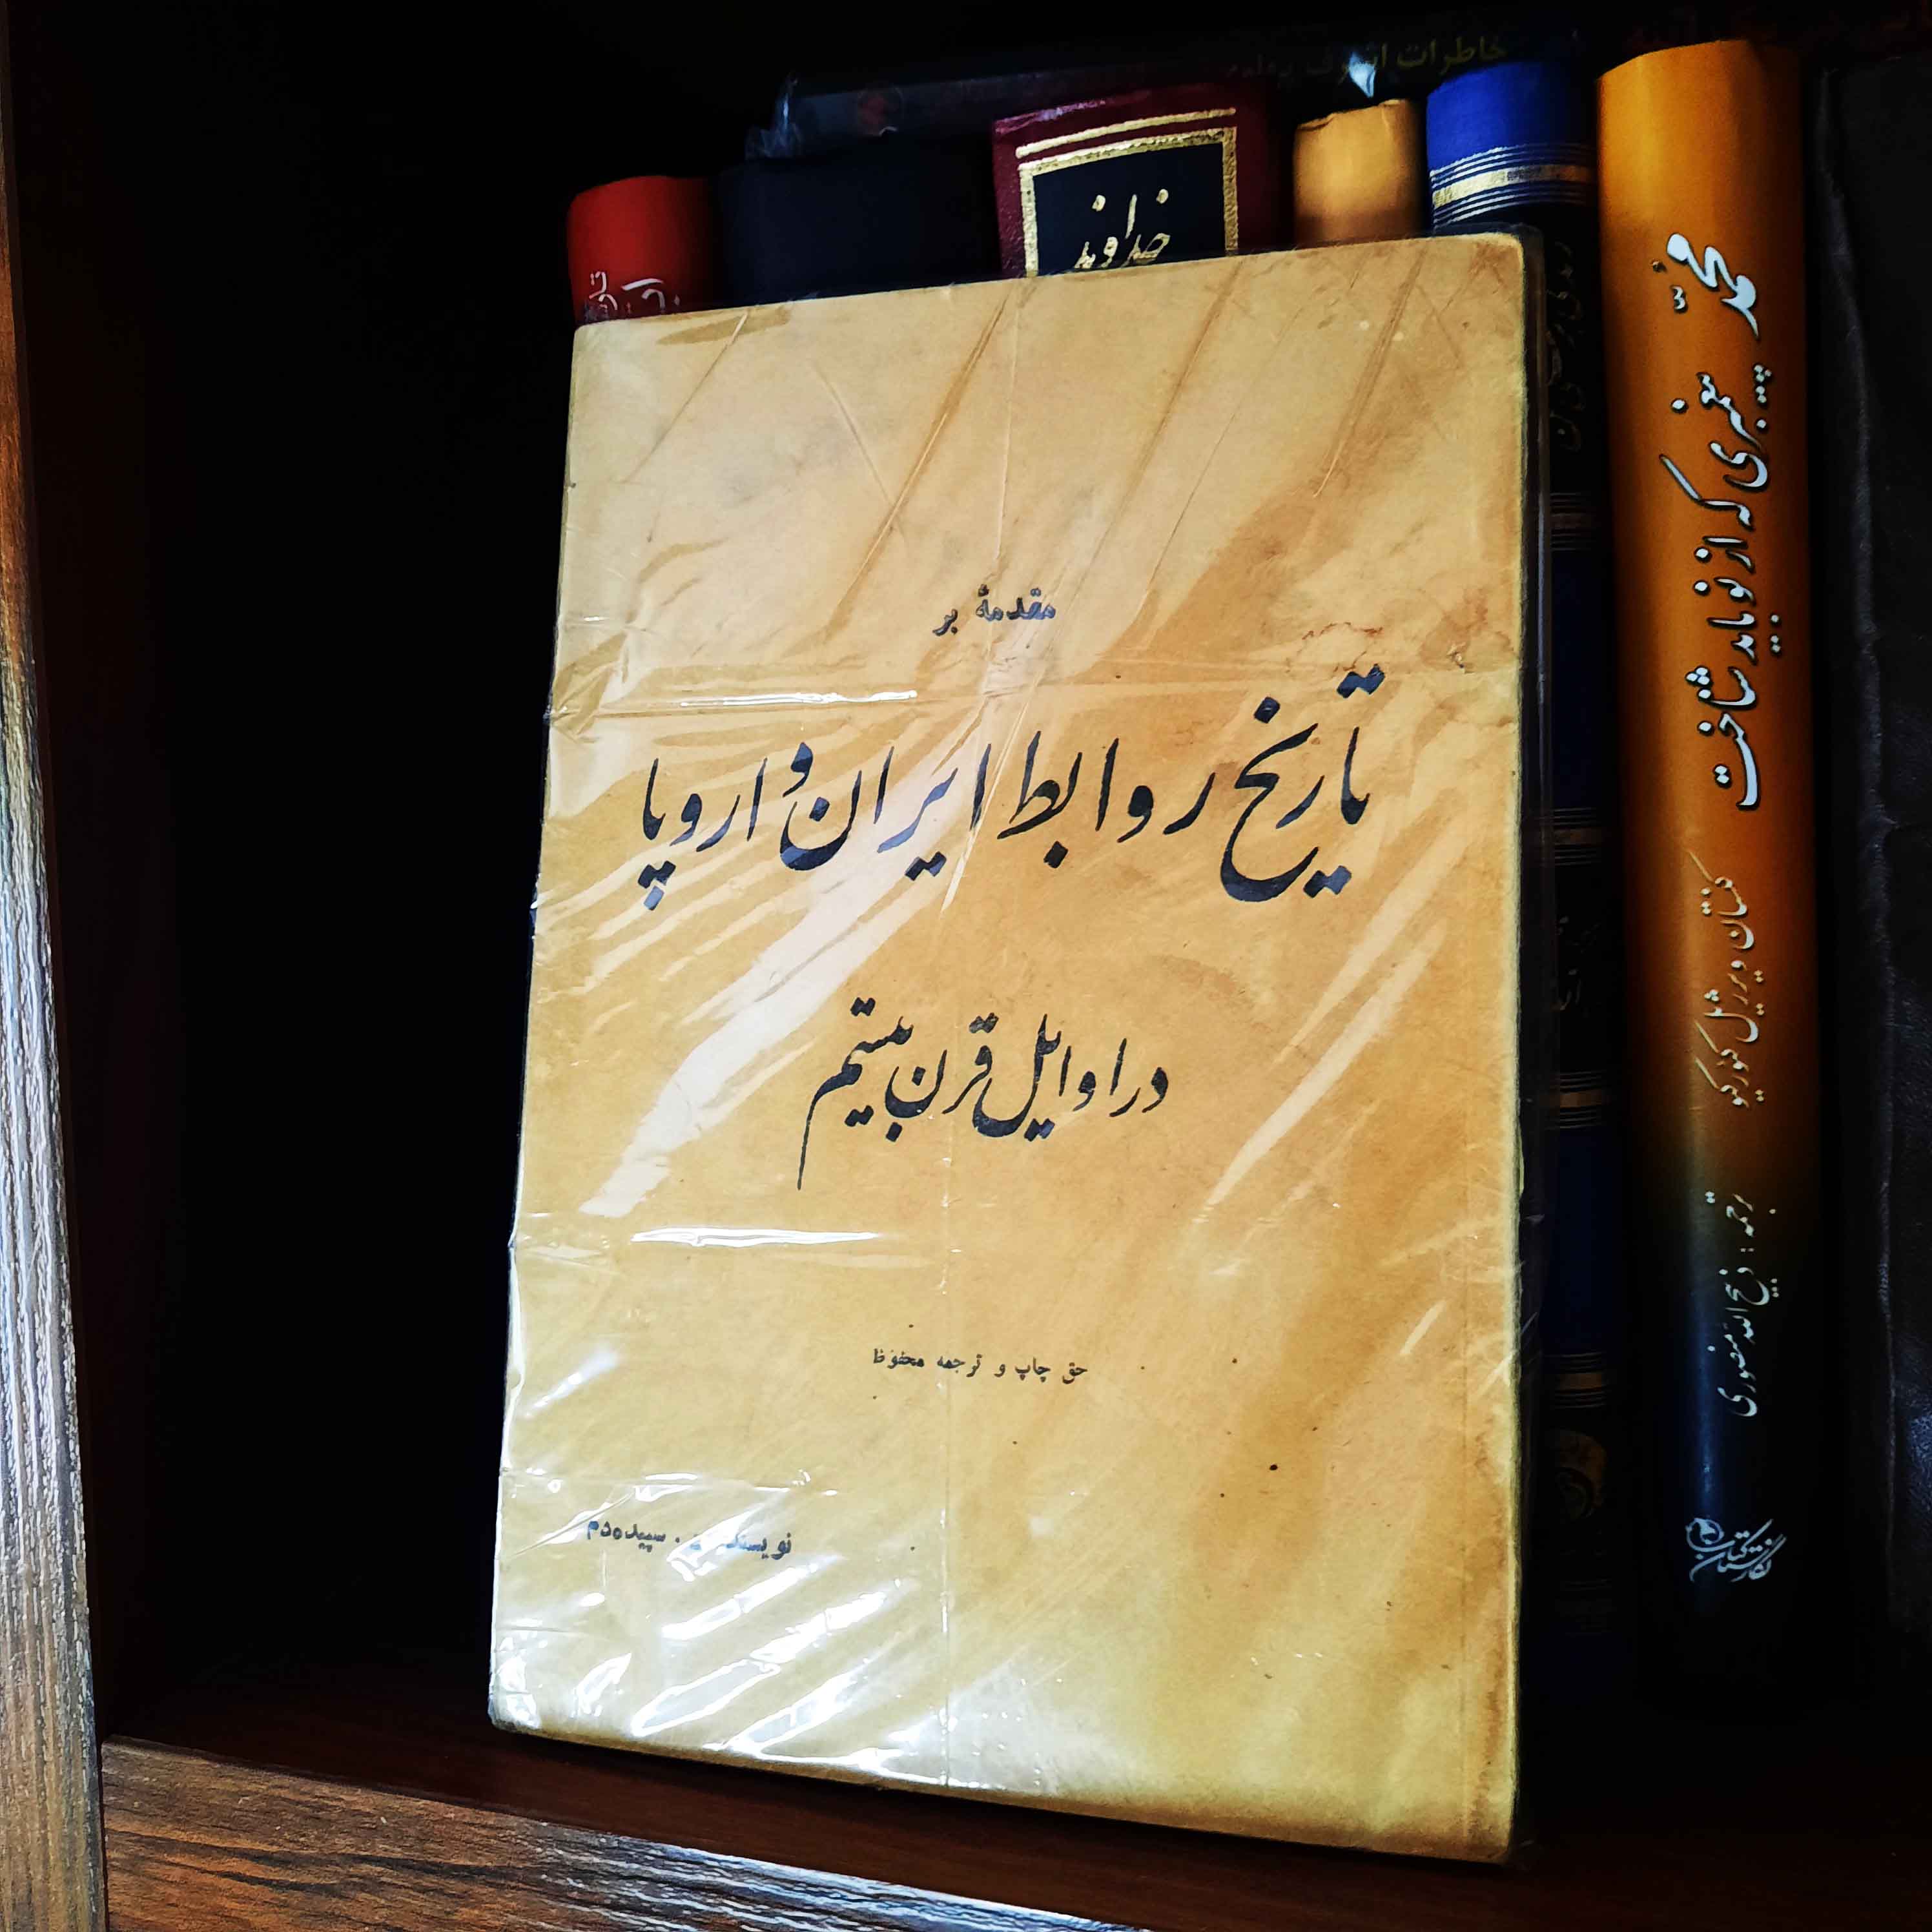 خاطرات اشرف پهلوی
خداوند
مقدمهٔ بر
تاریخ روابط ایران و اروپا
در اوایل قرن بیستم
حق چاپ و ترجمه محفوظ
نویسنده . سپیده‌دم
محمّد پیغمبری که از نو باید شناخت
کنستان ویرژیل گئورگیو
ترجمه: ذبیح الله منصوری
نگارستان کتاب